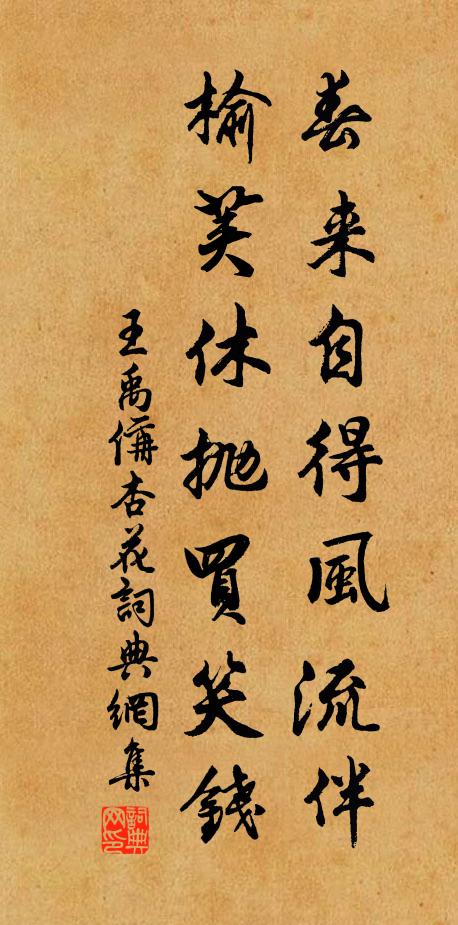 春来自得風流伴
榆荚休抛買笑錢
王禹偁杏花詞典網集
詞典网印